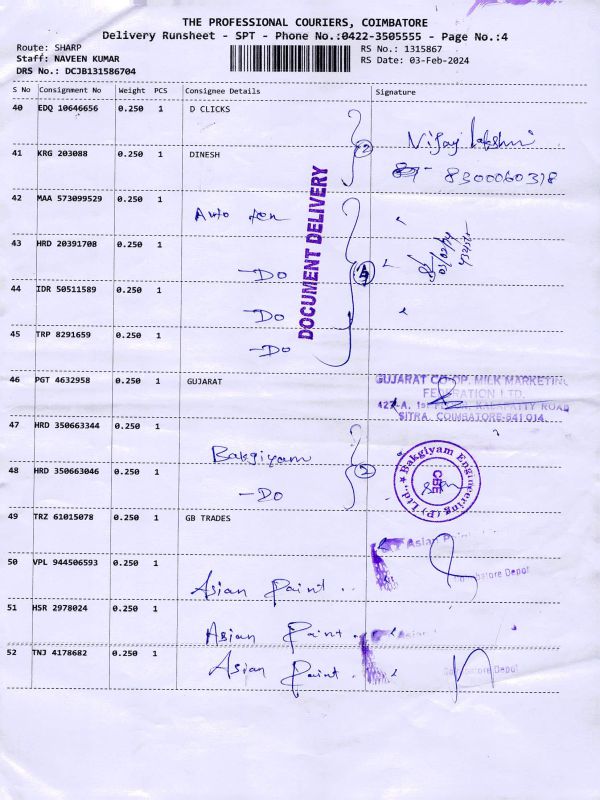 THE PROFESSIONAL COURIERS, COIMBATORE
Delivery Runsheet - SPT - Phone No.:0422-3505555 - Page No.:4
Route: SHARP
Staff: NAVEEN KUMAR
DRS No.: DCJB131586704
RS No.: 1315867
RS Date: 03-Feb-2024
S No Consignment No Weight PCS Consignee Details Signature
40 EDQ 10646656 0.250 1 D CLICKS
2
Vijay lakshmi
41 KRG 203088 0.250 1 DINESH
8300060318
DOCUMENT DELIVERY
42 MAA 573099529 0.250 1 Auto
43 HRD 20391708 0.250 1 - Do
4
44 IDR 50511589 0.250 1 - Do
45 TRP 8291659 0.250 1 - Do
46 PGT 4632958 0.250 1 GUJARAT
GUJARAT CO-OP. MILK MARKETING
FEDERATION LTD.
KALAPATTY ROAD
SITRA, COIMBATORE-641 014.
47 HRD 350663344 0.250 1 Bakgiyam
2
Bakgiyam Engineering (P) Ltd.,
CBE
48 HRD 350663046 0.250 1 - Do
49 TRZ 61015078 0.250 1 GB TRADES
Asian
50 VPL 944506593 0.250 1 Asian Paint ..
Coimbatore Depot
51 HSR 2978024 0.250 1 Asian Paint ..
Asian
52 TNJ 4178682 0.250 1 Asian Paint ..
Coimbatore Depot